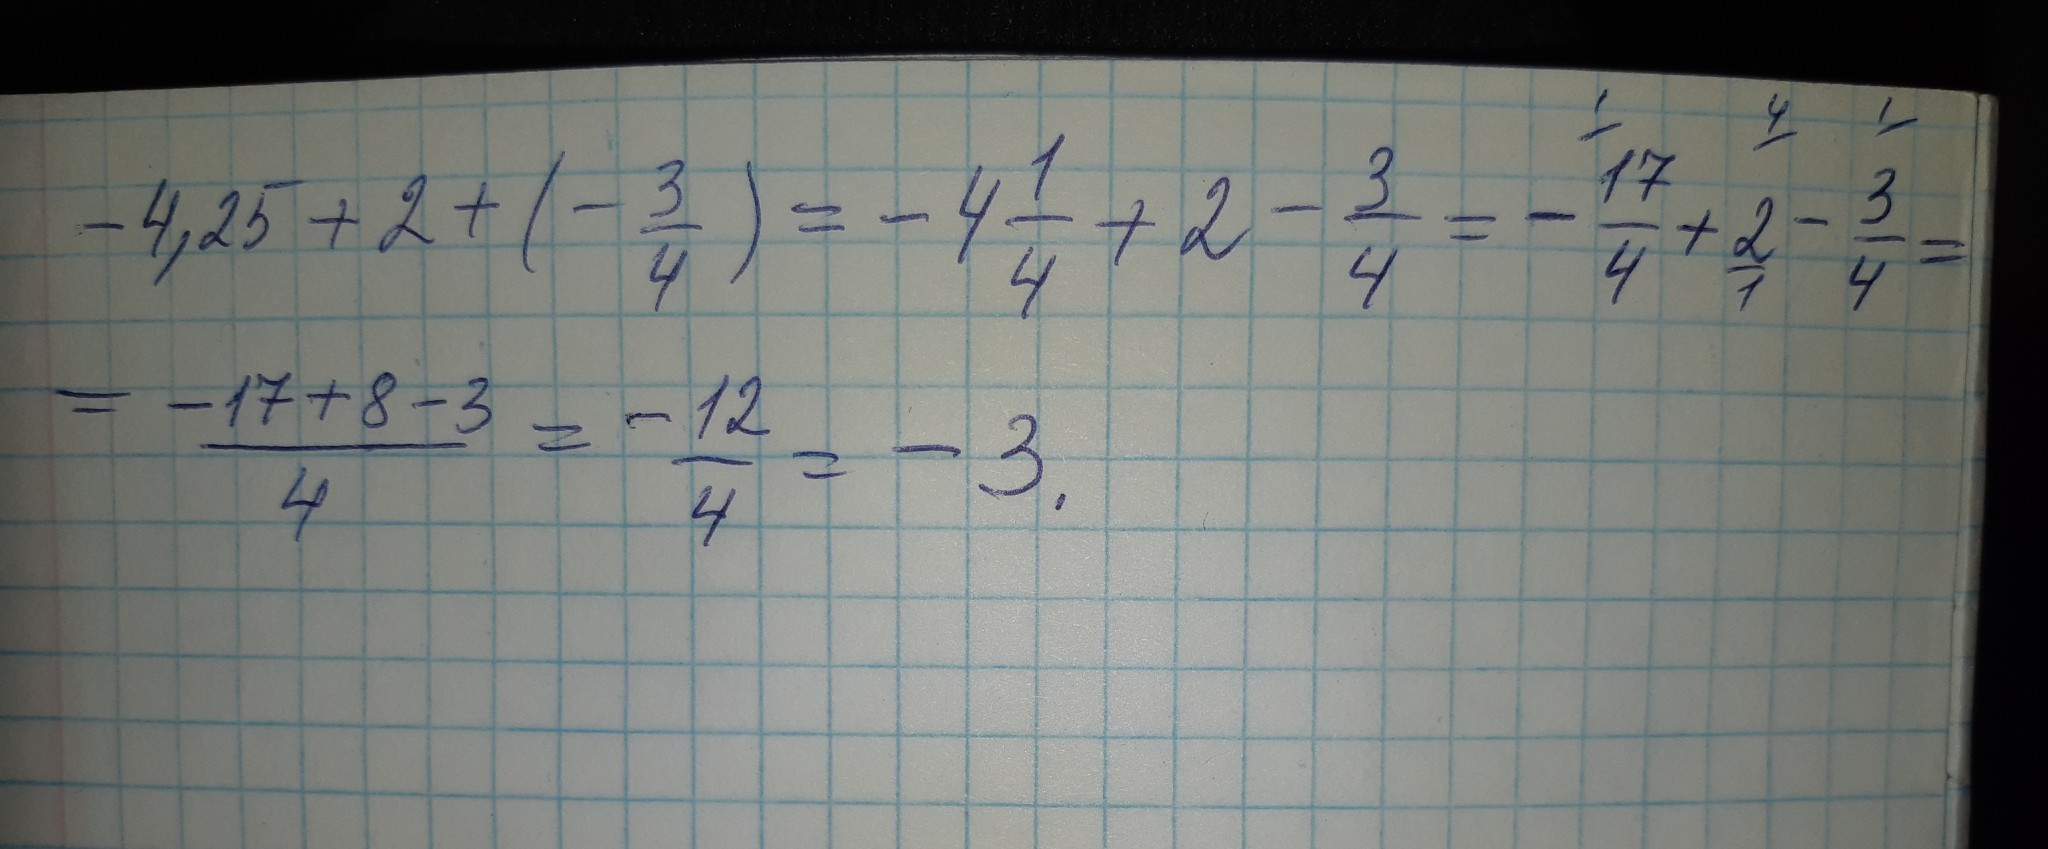 -4,25 + 2 + (-3/4) = -4 1/4 + 2 - 3/4 = - 17/4 + 2/1 - 3/4 =
= (-17+8-3)/4 = -12/4 = -3.